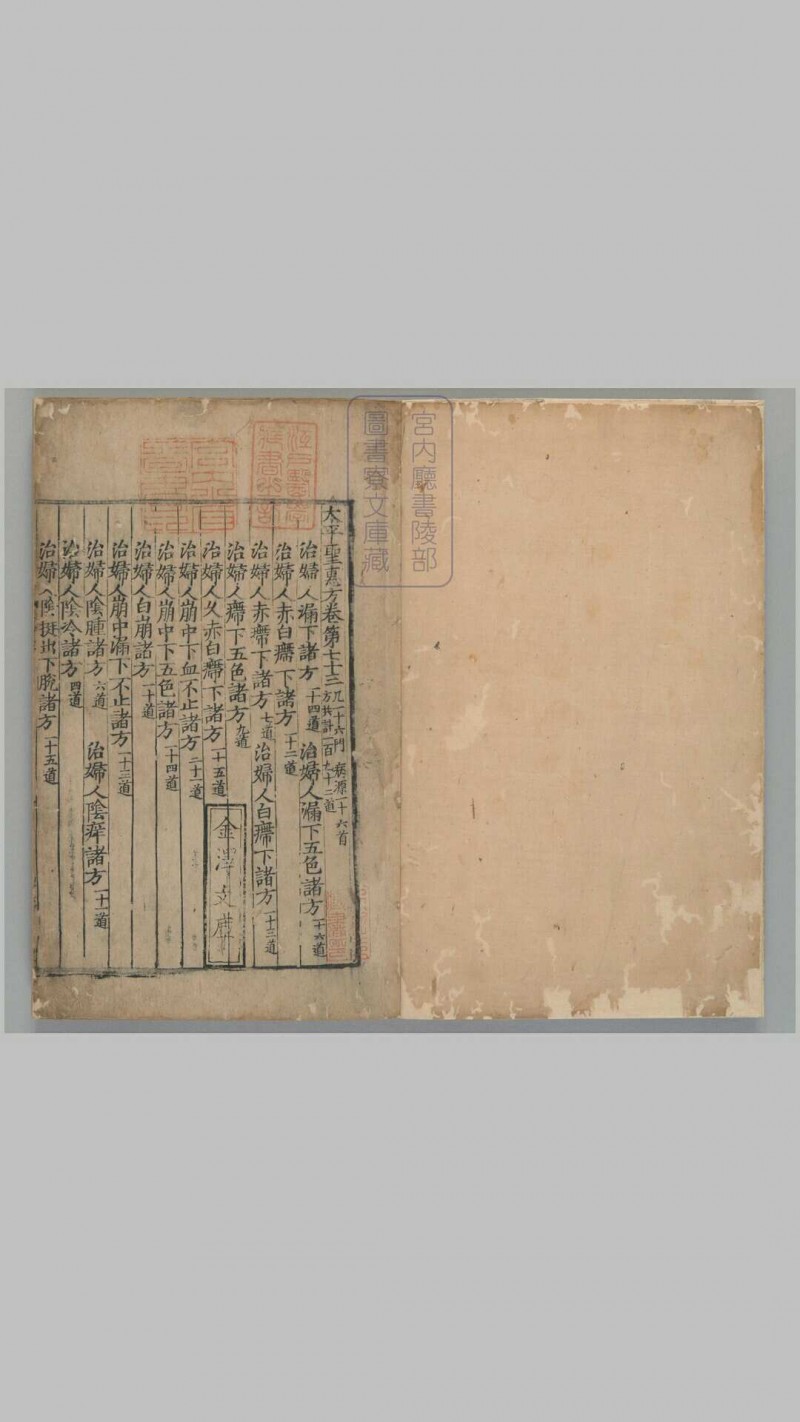 宮内廳書陵部
圖書寮文庫藏
太平聖惠方卷第七十三 凡一十六門 病源一十六首 方共計一百九十二道
治婦人漏下諸方 一十四道 治婦人漏下五色諸方 一十六道
治婦人赤白㿃下諸方 一十二道
治婦人赤㿃下諸方 七道 治婦人白㿃下諸方 一十三道
治婦人㿃下五色諸方 九道
治婦人久赤白㿃下諸方 一十五道
治婦人崩中下血不止諸方 二十一道
治婦人崩中下五色諸方 一十四道
治婦人白崩諸方 一十道
治婦人崩中漏下不止諸方 一十三道
治婦人陰腫諸方 六道 治婦人陰痒諸方 一十一道
治婦人陰冷諸方 四道
治婦人陰挺出下脫諸方 一十五道
金澤文庫